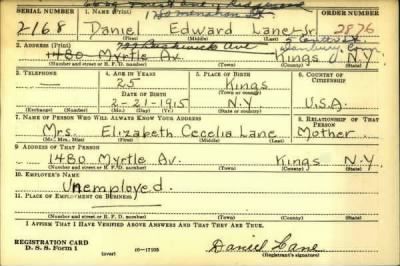 SERIAL NUMBER 1. NAME (Print) ORDER NUMBER
2168 Daniel Edward Lane Jr. 2876
(First) (Middle) (Last)
2. ADDRESS (Print)
1480 Myrtle Av. Kings N.Y.
(Number and street or R. F. D. number) (Town) (County) (State)
3. TELEPHONE 4. AGE IN YEARS 5. PLACE OF BIRTH 6. COUNTRY OF CITIZENSHIP
— 25 Kings
DATE OF BIRTH (Town or county)
2-21-1915 N.Y. U.S.A.
(Exchange) (Number) (Mo.) (Day) (Yr.) (State or country)
7. NAME OF PERSON WHO WILL ALWAYS KNOW YOUR ADDRESS 8. RELATIONSHIP OF THAT PERSON
Mrs. Elizabeth Cecelia Lane Mother
(Mr., Mrs., Miss) (First) (Middle) (Last)
9. ADDRESS OF THAT PERSON
1480 Myrtle Av. Kings N.Y.
(Number and street or R. F. D. number) (Town) (County) (State)
10. EMPLOYER'S NAME
Unemployed.
11. PLACE OF EMPLOYMENT OR BUSINESS
(Number and street or R. F. D. number) (Town) (County) (State)
I AFFIRM THAT I HAVE VERIFIED ABOVE ANSWERS AND THAT THEY ARE TRUE.
REGISTRATION CARD
D. S. S. Form 1 (over) Daniel Lane
(Registrant's signature)